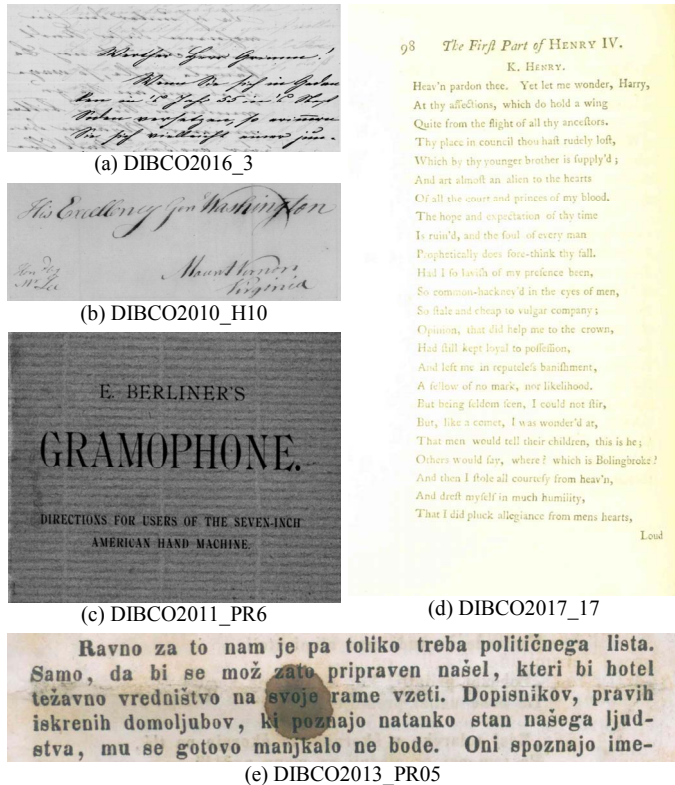 Werther Herr Grimm!
Wenn Sie sich in Gedan
ken in Jahr 35 in
versetzen, so erinnern
Sie sich vielleicht einer jun-
(a) DIBCO2016_3
His Excellency Genl Washington
Mount Vernon
Virginia
(b) DIBCO2010_H10
E. BERLINER'S
GRAMOPHONE.
DIRECTIONS FOR USERS OF THE SEVEN-INCH
AMERICAN HAND MACHINE.
(c) DIBCO2011_PR6
98 The Firſt Part of HENRY IV.
K. HENRY.
Heav'n pardon thee. Yet let me wonder, Harry,
At thy affections, which do hold a wing
Quite from the flight of all thy anceſtors.
Thy place in council thou haſt rudely loſt,
Which by thy younger brother is ſupply'd ;
And art almoſt an alien to the hearts
Of all the court and princes of my blood.
The hope and expectation of thy time
Is ruin'd, and the ſoul of every man
Prophetically does fore-think thy fall.
Had I ſo laviſh of my preſence been,
So common-hackney'd in the eyes of men,
So ſtale and cheap to vulgar company ;
Opinion, that did help me to the crown,
Had ſtill kept loyal to poſſeſſion,
And left me in reputeleſs baniſhment,
A fellow of no mark, nor likelihood.
But being ſeldom ſeen, I could not ſtir,
But, like a comet, I was wonder'd at,
That men would tell their children, this is he ;
Others would ſay, where ? which is Bolingbroke ?
And then I ſtole all courteſy from heav'n,
And dreſt myſelf in much humility,
That I did pluck allegiance from mens hearts,
Loud
(d) DIBCO2017_17
Ravno za to nam je pa toliko treba političnega lista.
Samo, da bi se mož zato pripraven našel, kteri bi hotel
težavno vredništvo na svoje rame vzeti. Dopisnikov, pravih
iskrenih domoljubov, ki poznajo natanko stan našega ljud-
stva, mu se gotovo manjkalo ne bode. Oni spoznajo ime-
(e) DIBCO2013_PR05